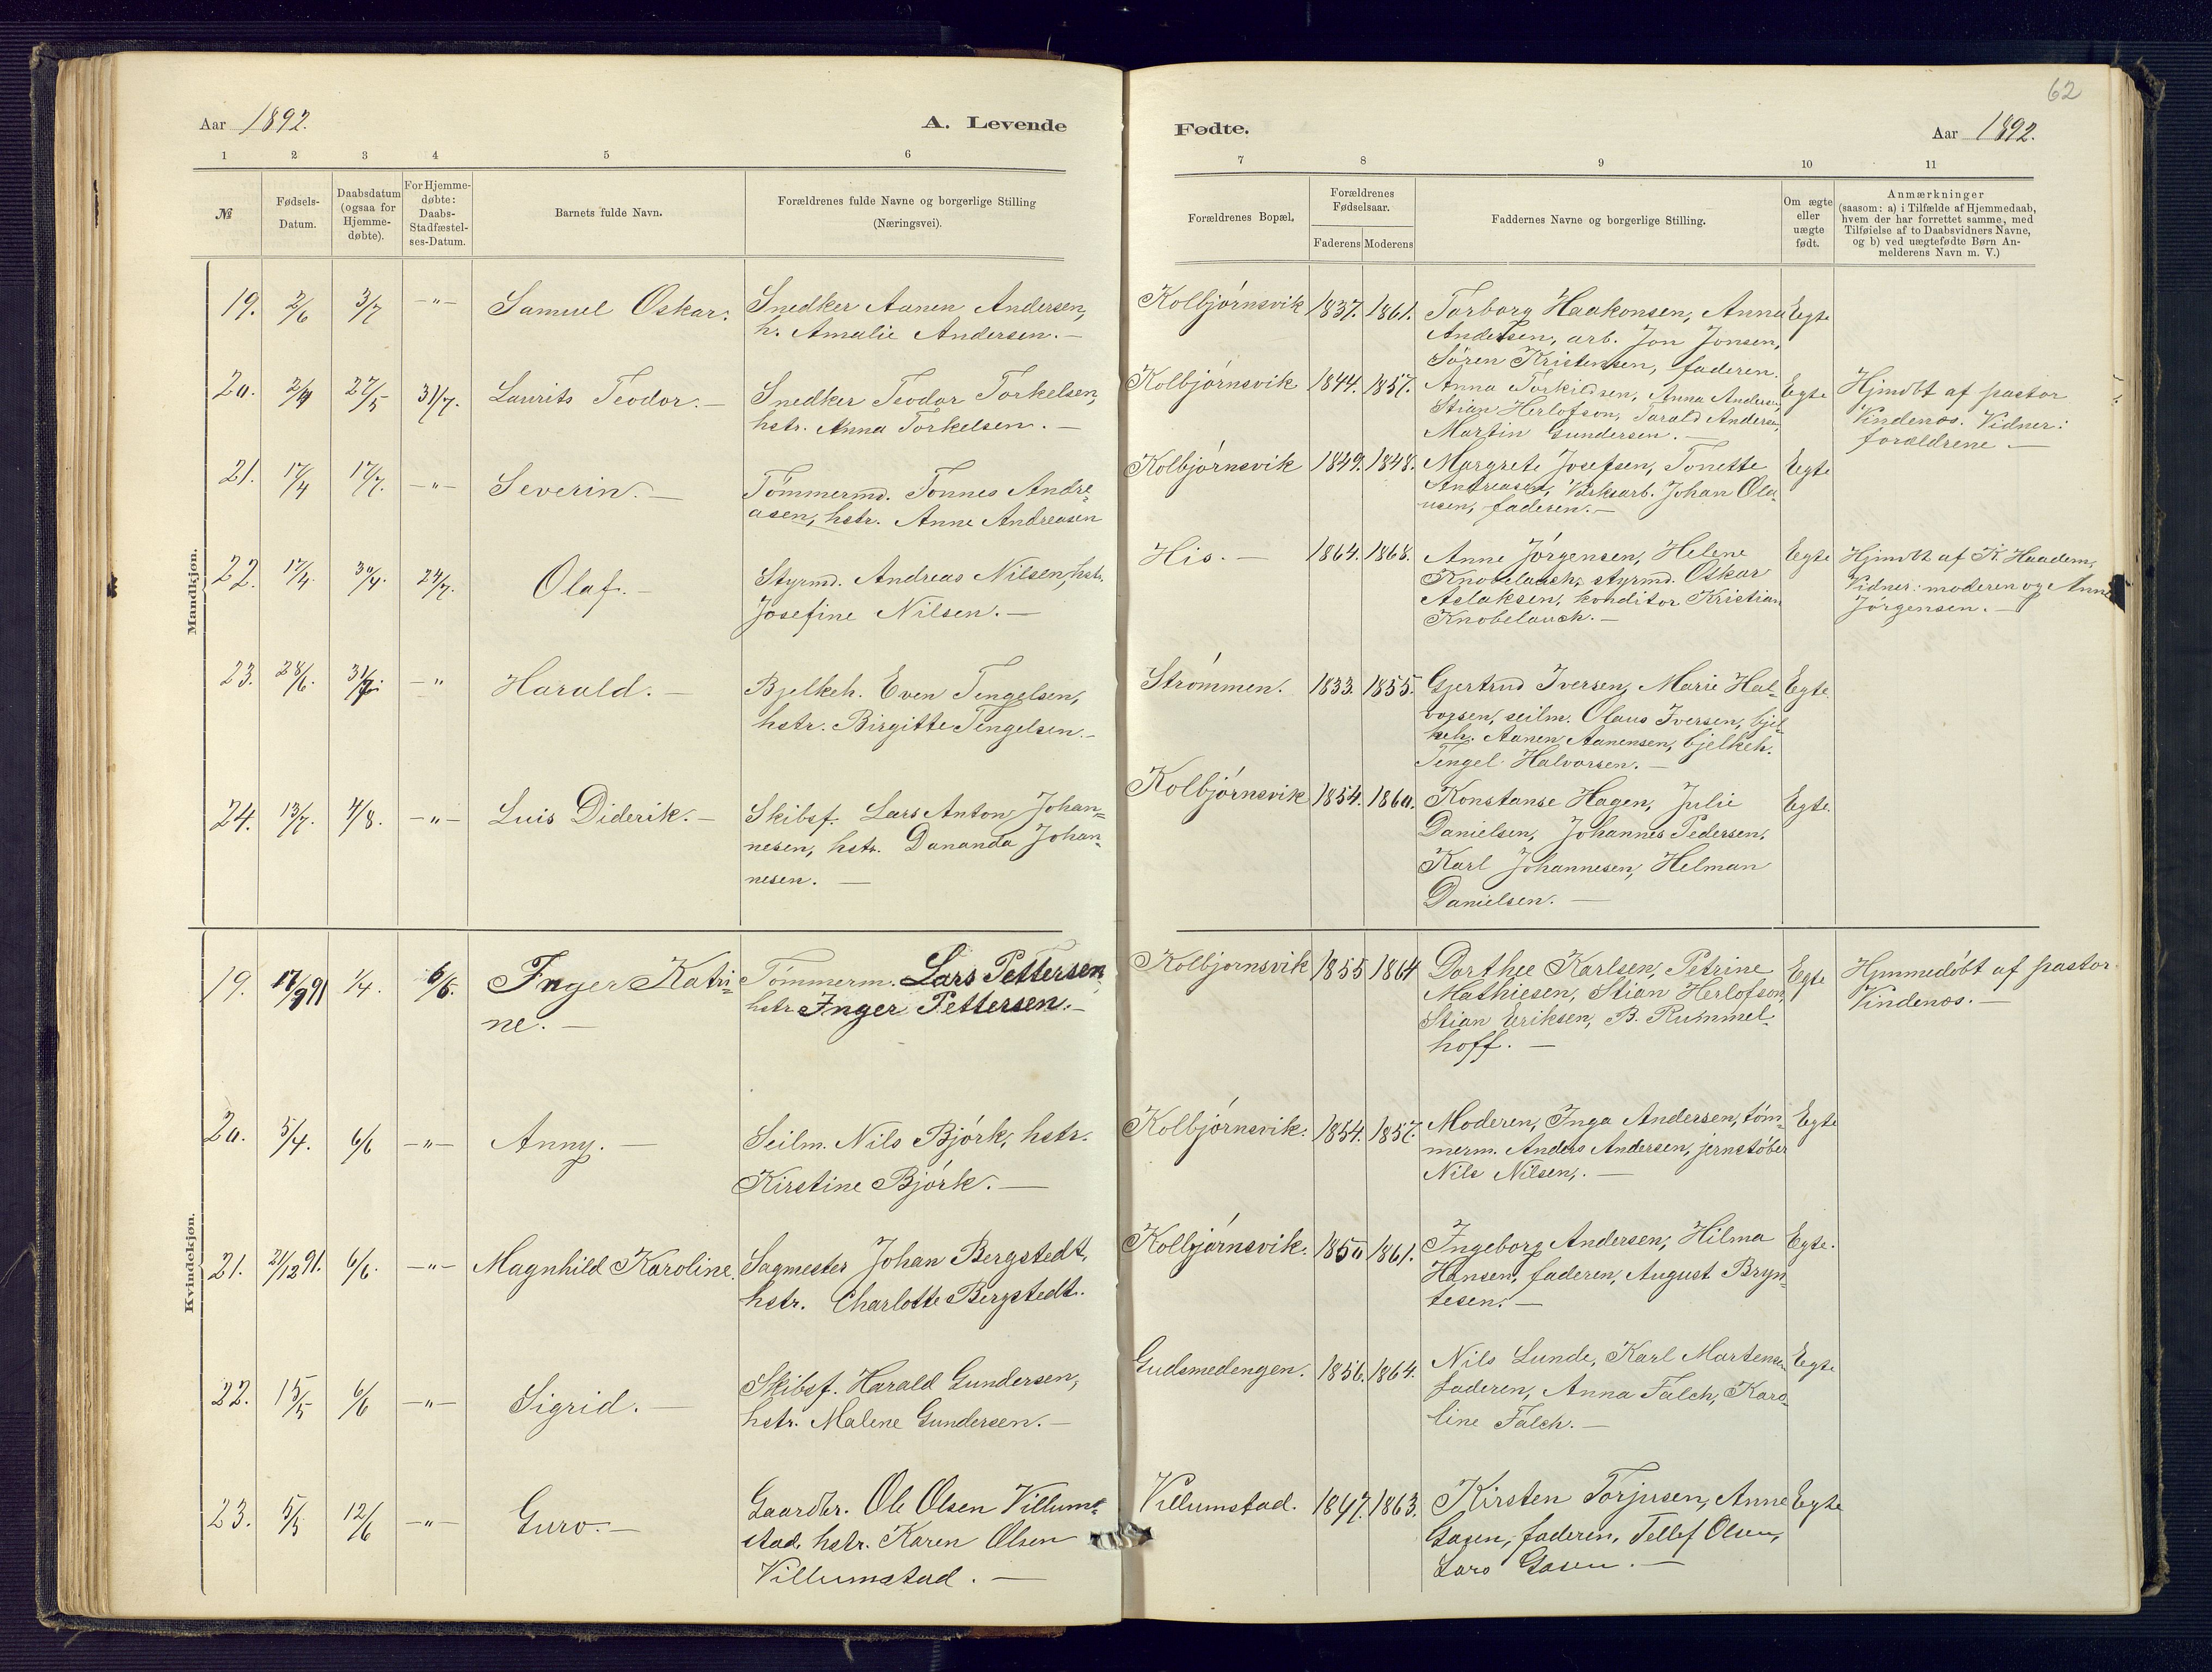 62
Aar 1892.
A. Levende
Fødte.
Aar 1892.
1 2 3 4 5 6
7 8 9 10 11
№
Fødsels-
Datum.
Daabsdatum
(ogsaa for
Hjemme-
døbte).
For Hjemme-
døbte:
Daabs-
Stadfæstel-
ses-Datum.
Barnets fulde Navn.
Forældrenes fulde Navne og borgerlige Stilling
(Næringsvei).
Forældrenes Bopæl,
Forældrenes
Fødselsaar.
Faderens Moderens
Faddernes Navne og borgerlige Stilling.
Om ægte
eller
uægte
født.
Anmærkninger
(saasom: a) i Tilfælde af Hjemmedaab,
hvem der har forrettet samme, med
Tilføielse af to Daabsvidners Navne,
og b) ved uægtefødte Børn An-
melderens Navn m. V.)
Mandkjøn.
19. 2/6 3/7 -"- Samuel Oskar.
Snedker Aanen Andersen,
h. Amalie Andersen. —
Kolbjørnsvik 1837. 1861.
Torborg Haakonsen, Anna
Andersen, arb. Jon Jonsen,
Søren Kristensen, faderen.
Egte
20. 27/5 31/7. Laurits Teodor. —
Snedker Teodor Torkelsen,
hstr. Anna Torkelsen. —
Kolbjørnsvik 1844. 1857.
Anna Torkildsen, Anna Andersen,
Stian Herlofson, Tarald Andersen,
Martin Gundersen. —
Egte
Hjmdbt af pastor
Vindenæs. Vidner:
forældrene —
21. 17/4 17/7. -"- Severin. —
Tømmermd. Tønnes Andre-
asen, hstr. Anne Andreasen
Kolbjørnsvik 1849. 1848.
Margrete Josefsen, Tonette
Andreasen, Verksarb. Johan Ola-
usen, faderen. —
Egte
22. 17/4. 30/4. 24/7. Olaf. —
Styrmd. Andreas Nilsen, hstr.
Josefine Nilsen. —
His. — 1864. 1868.
Anne Jørgensen, Helene
Knobelauch, styrmd. Oskar
Aslaksen, konditor Kristian
Knobelauch. —
Egte
Hjmdbt af K. Haadem,
Vidner: moderen og Anne
Jørgensen. —
23. 28/6. 31/7. -" Harald. —
Bjelkeh. Even Tengelsen,
hstr. Birgitte Tengelsen. —
Strømmen. 1833. 1855.
Gjertrud Iversen, Marie Hal-
vorsen, seilm. Olaus Iversen, bjel-
keh. Aanen Aanensen, bjelkeh.
Tengel Halvorsen. —
Egte.
24. 13/7. 7/8. -"- Luis Diderik. —
Skibsf. Lars Anton Johan-
nesen, hstr. Dananda Johan-
nesen. —
Kolbjørnsvik 1854. 1860.
Konstanse Hagen, Julie
Danielsen, Johannes Pedersen,
Karl Johannesen, Helman
Danielsen. —
Egte.
Kvindekjøn.
19. 17/9 91 1/4. 6/6. Inger Katri-
ne. —
Tømmerm. Lars Pettersen,
hstr Inger Pettersen. —
Kolbjornsvik 1855 1864
Dorthee Karlsen, Petrine
Mathiesen, Stian Herlofson,
Stian Eriksen, B. Rummel-
hoff. —
Egte
Hjemmedøbt af pastor
Vindenæs. —
20. 5/4. 6/6 -"- Anny. —
Seilm. Nils Bjørk, hstr.
Kirstine Bjørk. —
Kolbjørnsvik. 1854. 1857.
Moderen, Inga Andersen, tøm-
merm. Anders Andersen, jernstøber
Nils Nilsen,. —
Egte
21. 21/12 91. 6/6. -"- Magnhild Karoline.
Sagmester Johan Bergstedt,
hstr. Charlotte Bergstedt.
Kolbjørnsvik. 1850 1861.
Ingeborg Andersen, Hilma
Hansen, faderen, August Bryn-
tesen. —
Egte.
22. 15/5 6/6 -"- Sigrid. —
Skibsf. Harald Gundersen,
hstr. Malene Gundersen. —
Gudsmedengen. 1856. 1864.
Nils Lunde, Karl Martensen
faderen, Anna Falch, Karo-
line Falch. —
Egte
23. 5/5 12/6 -"- Guro. —
Gaardbr. Ole Olsen Villum-
stad, hstr. Karen Olsen
Villumstad. —
Villumstad. 1847. 1863.
Kirsten Torjusen, Anne
Gasen, faderen, Tellef Olsen,
Lars Gasen. —
Egte